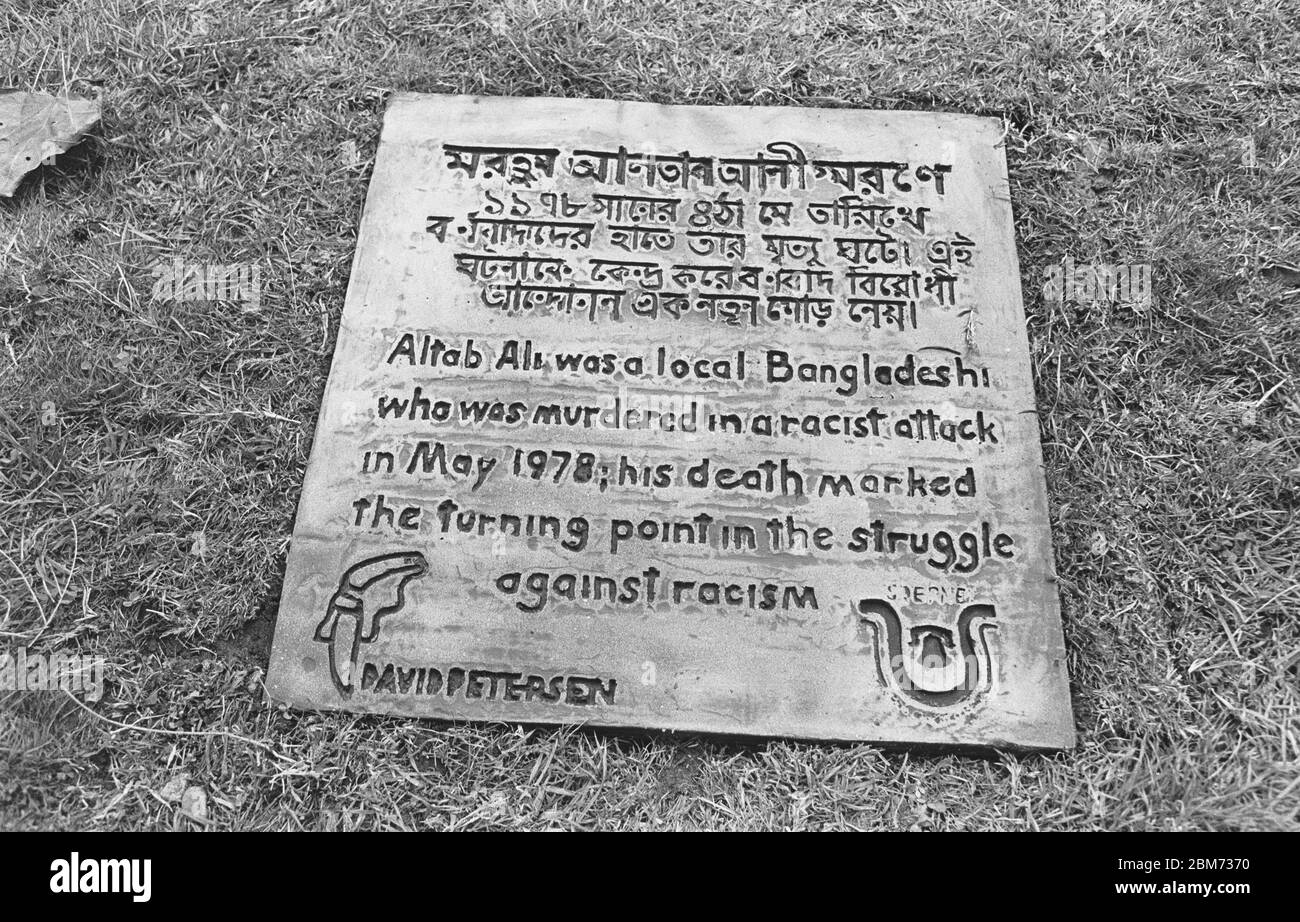 মরহুম আলতাব আলী স্মরণে
১৯৭৮ সালের ৪ঠা মে তারিখে
বর্ণবাদীদের হাতে তার মৃত্যু ঘটে। এই
ঘটনাকে কেন্দ্র করে বর্ণবাদ বিরোধী
আন্দোলন এক নতুন মোড় নেয়।
Altab Ali was a local Bangladeshi
who was murdered in a racist attack
in May 1978; his death marked
the turning point in the struggle
against racism
DAVID PETERSEN
alamy
Image ID: 2BM7370
www.alamy.com